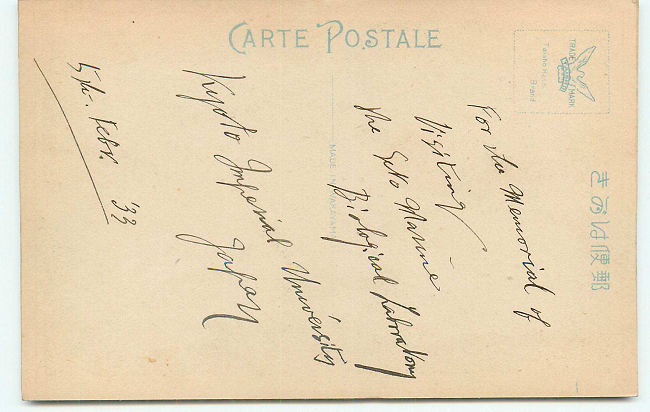 CARTE POSTALE
郵便はがき
TRADE MARK
Brand
For the Memorial of
Visiting
the Seto Marine
Biological Laboratory
Kyoto Imperial University
Japan
Febr. '33
MADE IN WAKAYAMA